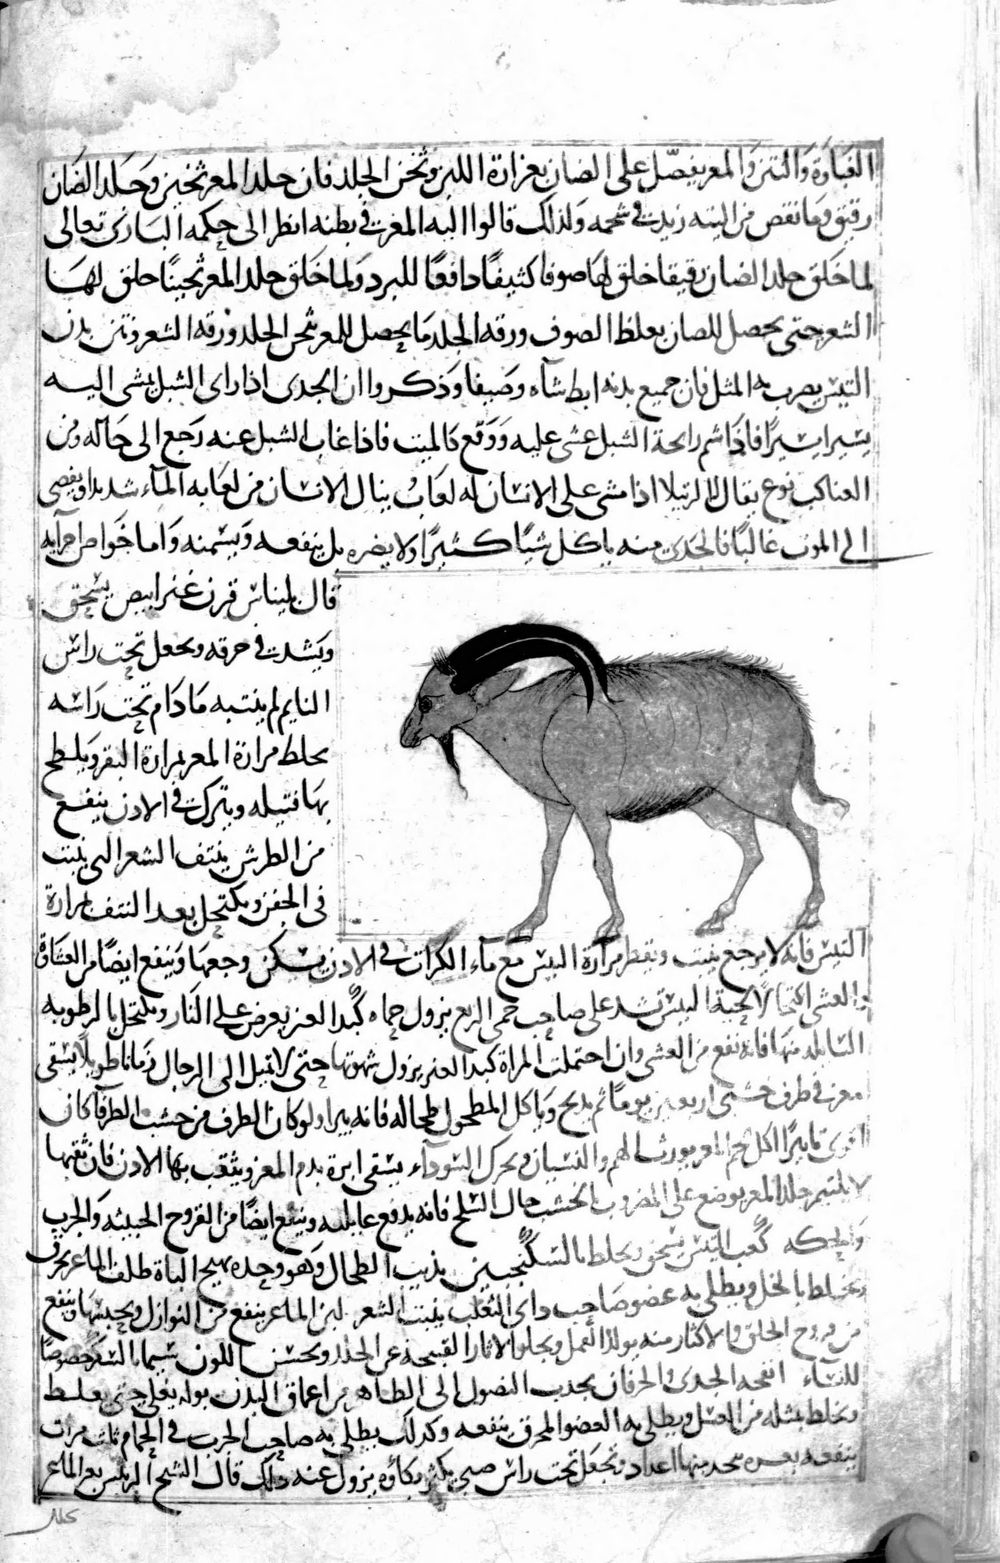 الغباوة والنتن والمعز يفضل على الضان بغزارة اللبن وثخن الجلد فان جلد المعز ثخين وجلد الضان
رقيق وما نقص من اليته زيدت فى شحمه ولذلك قالوا الية المعزى فى بطنه انظر الى حكمه البارى تعالى
لما خلق جلد الضان رقيقا خلق لها صوفا كثيفًا دافعًا للبرد ولما خلق جلد المعز ثخينًا خلق لها
الشعر حتى يحصل للضان بغلظ الصوف ورقه الجلد ما يحصل للمعز ثخن الجلد ورقه الشعر ونتن بدن
التيس يضرب به المثل فان جميع بدنه ابط شتاء وصيفا وذكروا ان الجدى اذا راى الشبل يمشى اليه
يسيرا يسيرًا فاذا شم رائحة الشبل غشى عليه ووقع كالميت فاذا غاب الشبل عنه رجع الى حاله ومن
العناكب نوع يقال لها الرتيلا اذا مشى على الانسان له لعاب ينال الانسان من لعابه الماء شديدا ويفضى
الى الموت غالبًا فالجدى منه ياكل شيًا كثيرًا ولا يضره بل ينفعه ويسمنه واما خواص اجزايه
قال بليناس قرن عنز ابيض يسحق
ويشد فى خرقه ويجعل تحت راس
النايم لم ينتبه ما دام تحت راسه
يخلط مرارة المعز بمرارة البقر ويلطخ
بها فتيله ويترك فى الاذن ينفع
من الطرش ينتف الشعر الذى ينبت
فى الجفن ويكتحل بعد النتف بمرارة
التيس فانه لا يرجع ينبت ويقطر مرارة التيس مع ماء الكراث فى الاذن يسكن وجعها وينفع ايضًا من الغشاوة
والعشى اكتحالًا لحية التيس تشد على صاحب حمى الربع يزول حماه كبد العنز يعرض على النار ويكتحل بالرطوبه
السايله منها فانه نفع من العشى وان احتملت المراة كبد العنز يزول شهوتها حتى لا تميل الى الرجال زمانا طويلا يسقى
معز فى ظرف خشبى اربعين يومًا ثم يذبح وياكل المطحول طحاله فانه يبرا ولو كان الظرف من خشب الطرفا كان
اقوى تاثيرًا اكل لحم المعز يورث الهم والنسيان ويحرك السوداء يسقى ابرة بدم المعز ويثقب بها الاذن فان ثقبها
لا يلتئم جلد المعز يوضع على المضروب بالخشب حال السلخ فانه يدفع غايلته وينفع ايضًا من القروح الخبيثه والجرب
والحكه كعب التيس يسحق ويخلط بالسكنجبين يذيب الطحال وهو وحده يهيج الباة ظلف الماعز يحرق
ويخلط بالخل ويطلى به عضو صاحب داى الثعلب ينبت الشعر لبن الماعز ينفع من النوازل ويحبسها وينفع
من قروح الحلق والاكثار منه يولد القمل ويجلو الاثار القبيحه عن الجلد ويحسن اللون سيما بالسكر خصوصًا
للنساء انفحه الجدى والخرفان يجذب النصول الى الظاهر من اعماق البدن بوله يغلى حتى يغلظ
ويخلط بمثله من العسل ويطلى به العضو المحرق ينفعه وكذلك يطلى به صاحب الجرب فى الحمام ثلث مرات
ينفعه بعره يتخذ منها اعداد ويجعل تحت راس صبى يكثر بكاؤه يزول عنه ذلك قال الشيخ الرئيس بعر الماعز